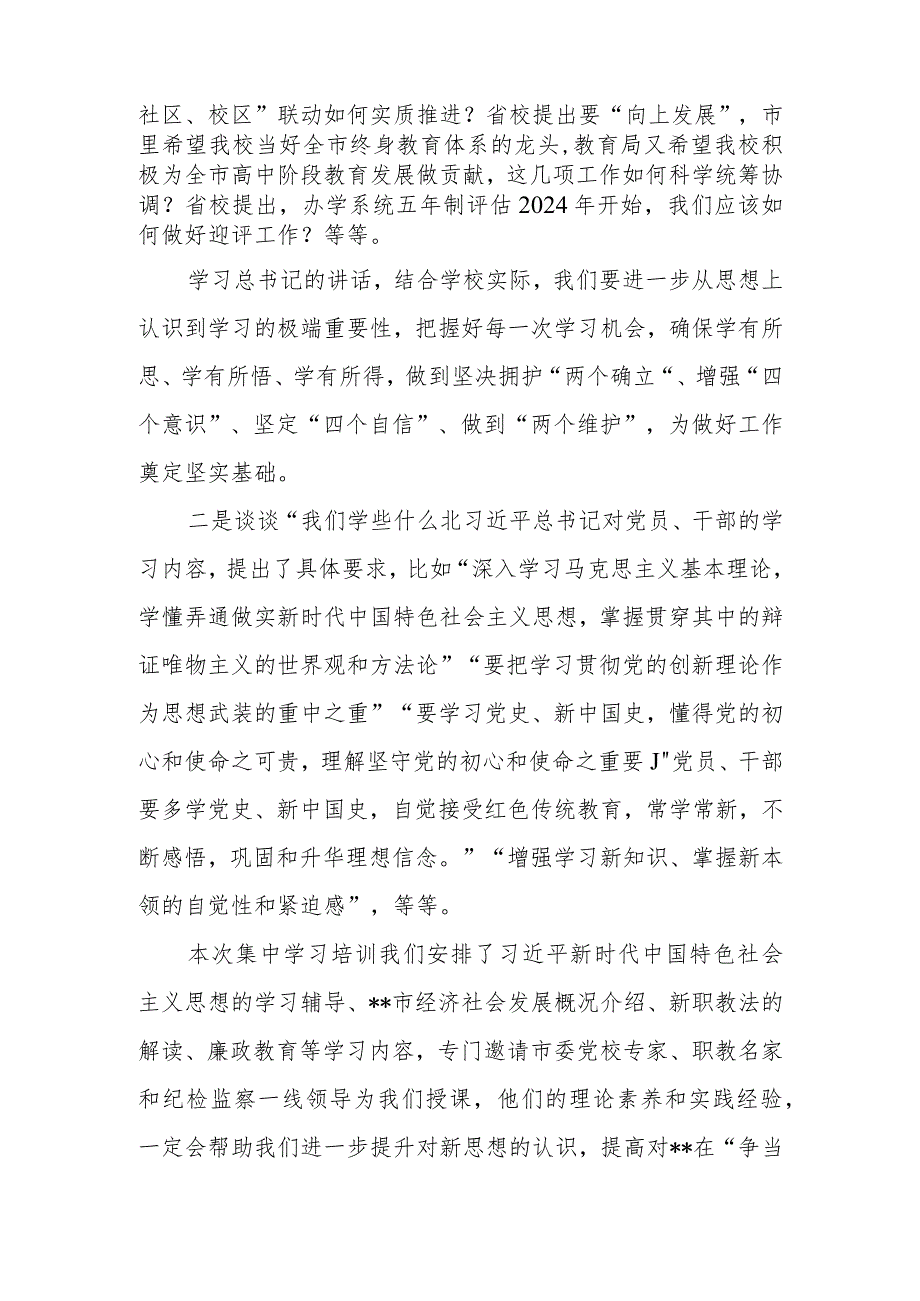 社区、校区”联动如何实质推进？省校提出要“向上发展”，市
里希望我校当好全市终身教育体系的龙头,教育局又希望我校积
极为全市高中阶段教育发展做贡献，这几项工作如何科学统筹协
调？省校提出，办学系统五年制评估2024年开始，我们应该如
何做好迎评工作？等等。
学习总书记的讲话，结合学校实际，我们要进一步从思想上
认识到学习的极端重要性，把握好每一次学习机会，确保学有所
思、学有所悟、学有所得，做到坚决拥护“两个确立“、增强“四
个意识”、坚定“四个自信”、做到“两个维护”，为做好工作
奠定坚实基础。
二是谈谈“我们学些什么北习近平总书记对党员、干部的学
习内容，提出了具体要求，比如“深入学习马克思主义基本理论，
学懂弄通做实新时代中国特色社会主义思想，掌握贯穿其中的辩
证唯物主义的世界观和方法论”“要把学习贯彻党的创新理论作
为思想武装的重中之重”“要学习党史、新中国史，懂得党的初
心和使命之可贵，理解坚守党的初心和使命之重要J"党员、干部
要多学党史、新中国史，自觉接受红色传统教育，常学常新，不
断感悟，巩固和升华理想信念。”“增强学习新知识、掌握新本
领的自觉性和紧迫感”，等等。
本次集中学习培训我们安排了习近平新时代中国特色社会
主义思想的学习辅导、**市经济社会发展概况介绍、新职教法的
解读、廉政教育等学习内容，专门邀请市委党校专家、职教名家
和纪检监察一线领导为我们授课，他们的理论素养和实践经验，
一定会帮助我们进一步提升对新思想的认识，提高对**在“争当